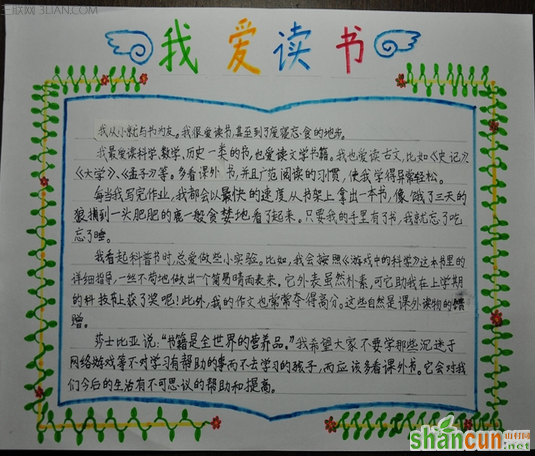 三联网 3LIAN.COM
我爱读书
我从小就与书为友。我很爱读书,甚至到了废寝忘食的地步。
我最爱读科学、数学、历史一类的书,也爱读文学书籍。我也爱读古文,比如《史记》、
《大学》、《孟子》等。多看课外书,并且广范阅读的习惯,使我学得异常轻松。
每当我写完作业,我都会以最快的速度,从书架上拿出一本书,像"饿了三天的
狼摸到一头肥肥的鹿"一般贪婪地看了起来。只要我的手里有了书,我就忘了吃
忘了睡。
我看起科普书时,总爱做些小实验。比如,我会按照《游戏中的科学》这本书里的
详细指导,一丝不苟地做出一个简易晴雨表来。它外表虽然朴素,可它助我在上学期
的科技节上获了奖呢!此外,我的作文也常常夺得高分。这些自然是课外读物的馈
赠。
莎士比亚说:"书籍是全世界的营养品。"我希望大家不要学那些沉迷于
网络游戏等不对学习有帮助的事而不去学习的孩子,而应该多看课外书。它会对我
们今后的生活有不可思议的帮助和提高。
shancun
山村网
.net